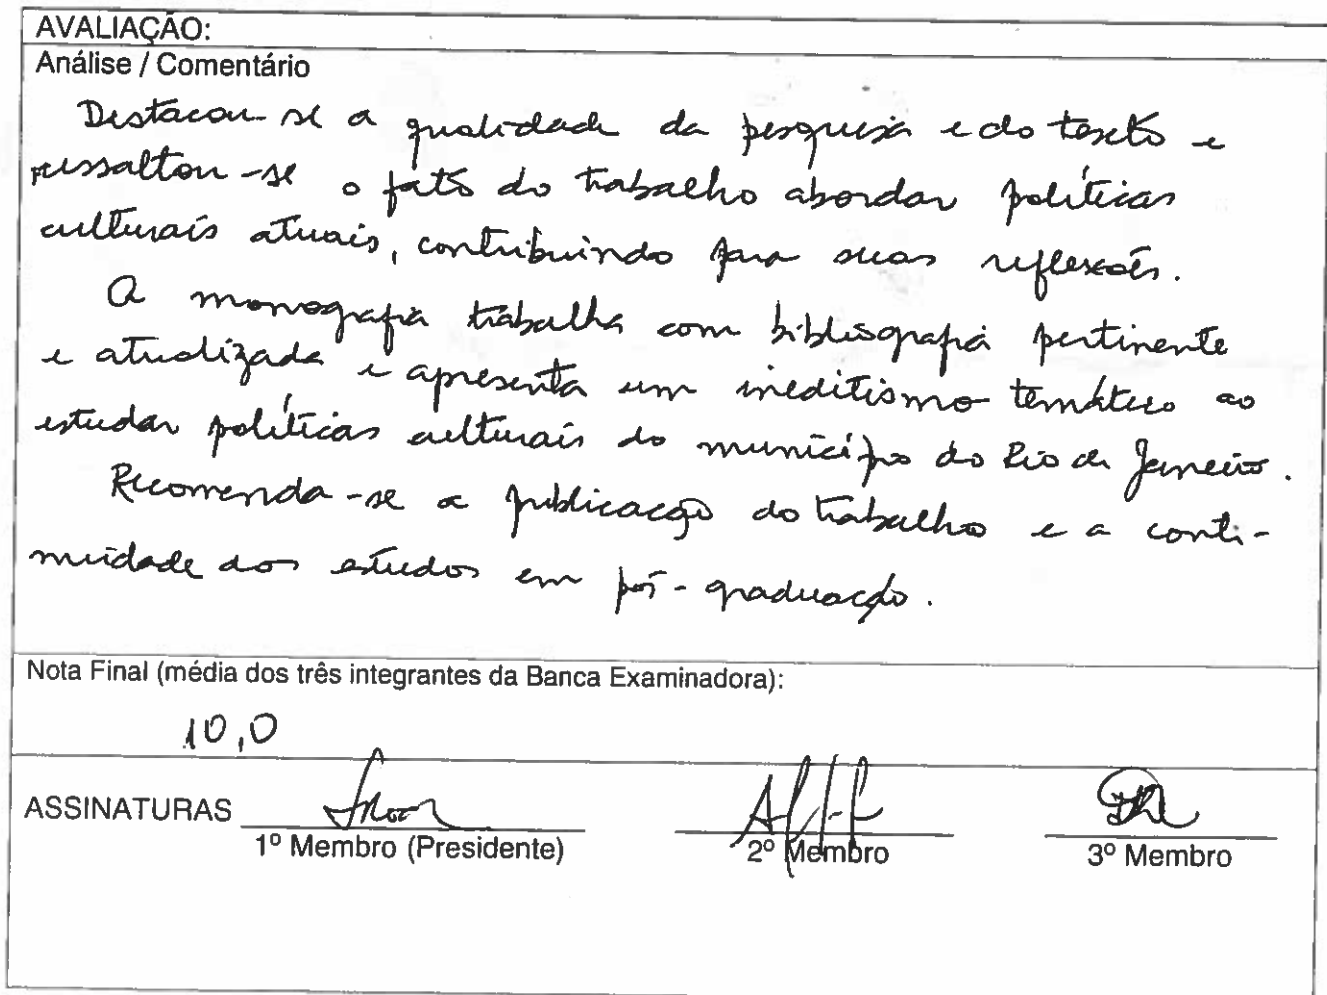 AVALIAÇÃO:
Análise / Comentário
Destacou-se a qualidade da pesquisa e do texto e
ressaltou-se o fato do trabalho abordar políticas
culturais atuais, contribuindo para suas reflexões.
A monografia trabalha com bibliografia pertinente
e atualizada e apresenta um ineditismo temático ao
estudar políticas culturais do município do Rio de Janeiro.
Recomenda-se a publicação do trabalho e a conti-
nuidade dos estudos em pós-graduação.
Nota Final (média dos três integrantes da Banca Examinadora):
10,0
ASSINATURAS
1º Membro (Presidente) 2º Membro 3º Membro